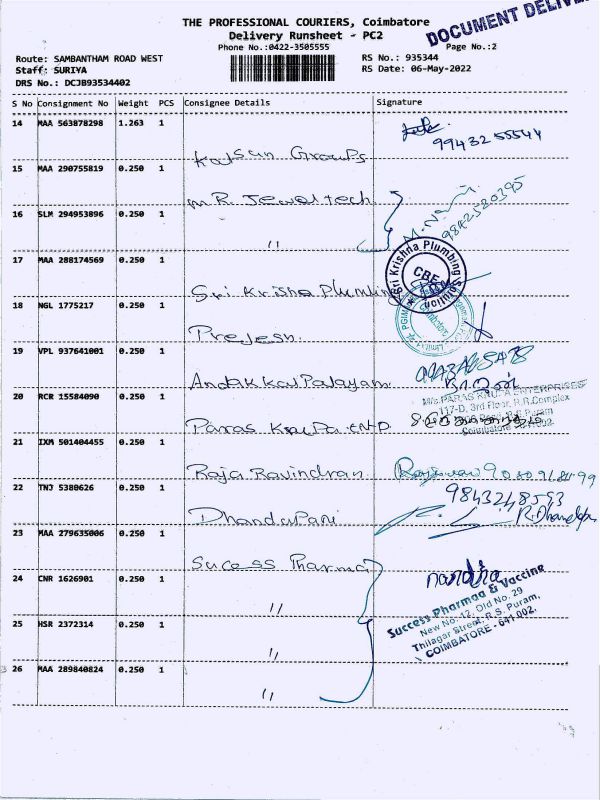 THE PROFESSIONAL COURIERS, Coimbatore
DOCUMENT DELIVE
Delivery Runsheet - PC2
Phone No.:0422-3505555
Page No.:2
Route: SAMBANTHAM ROAD WEST
RS No.: 935344
Staff: SURIYA
RS Date: 06-May-2022
DRS No.: DCJB93534402
S No Consignment No Weight PCS Consignee Details Signature
14 MAA 563878298 1.263 1
99432 55544
Groups
15 MAA 290755819 0.250 1
M.R. Jewel tech
16 SLM 294953896 0.250 1
9842520395
〃
17 MAA 288174569 0.250 1
Sri Krishna Plumbing Solution
CBE
Sri Krisha Plumbin
18 NGL 1775217 0.250 1
Coimbatore
Prejesh
19 VPL 937641001 0.250 1
Andakkal Palayam
20 RCR 15584090 0.250 1
M/s.PARAS KRUPA ENTERPRISES
117-D, 3rd Floor, R.R.Complex
R.S.Puram
Coimbatore
Paras Krupa
21 IXM 501404455 0.250 1
Raja Ravindran
22 TNJ 5380626 0.250 1
9843248593
R.Dhandapani
Dhandapani
23 MAA 279635006 0.250 1
Sucess Pharma
24 CNR 1626901 0.250 1
nandha
〃
Success Pharmaa & Vaccine
New No. 12, Old No. 29
Thilagar Street, R.S. Puram,
COIMBATORE - 641 002.
25 HSR 2372314 0.250 1
〃
26 MAA 289840824 0.250 1
〃